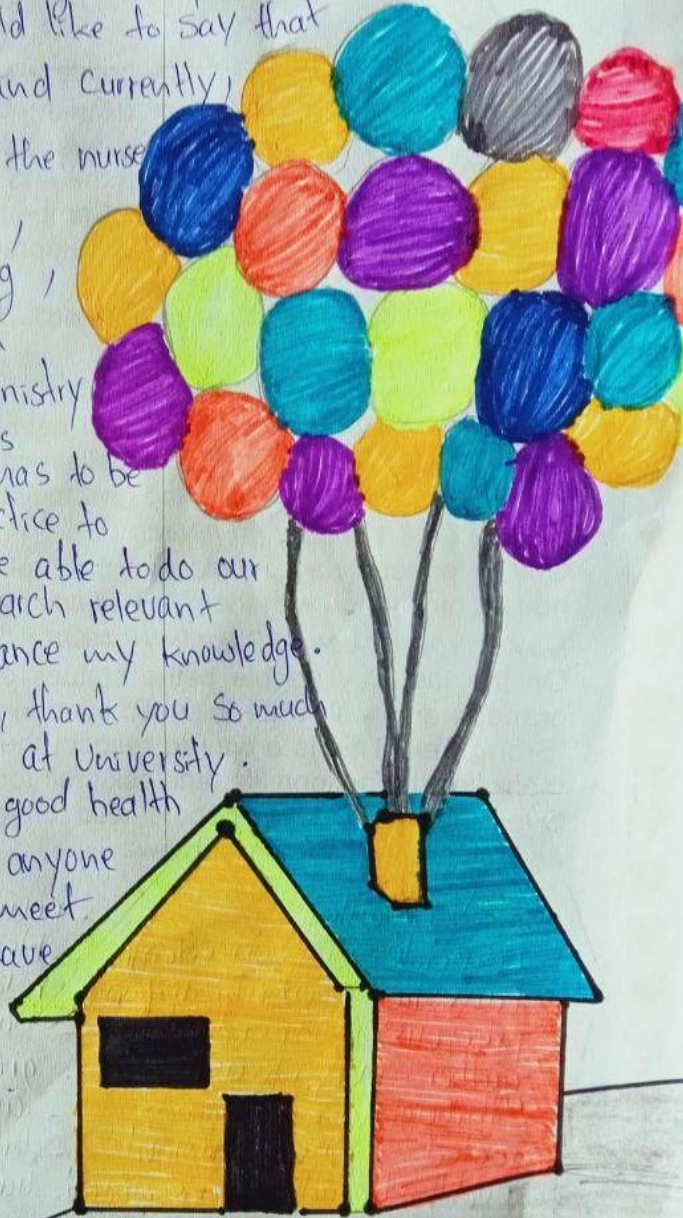 ld like to say that
and currently,
the nurse
,
g,
nistry
s
has to be
ctice to
e able to do our
arch relevant
ance my knowledge.
, thank you so much
at University.
good health
anyone
meet
ave